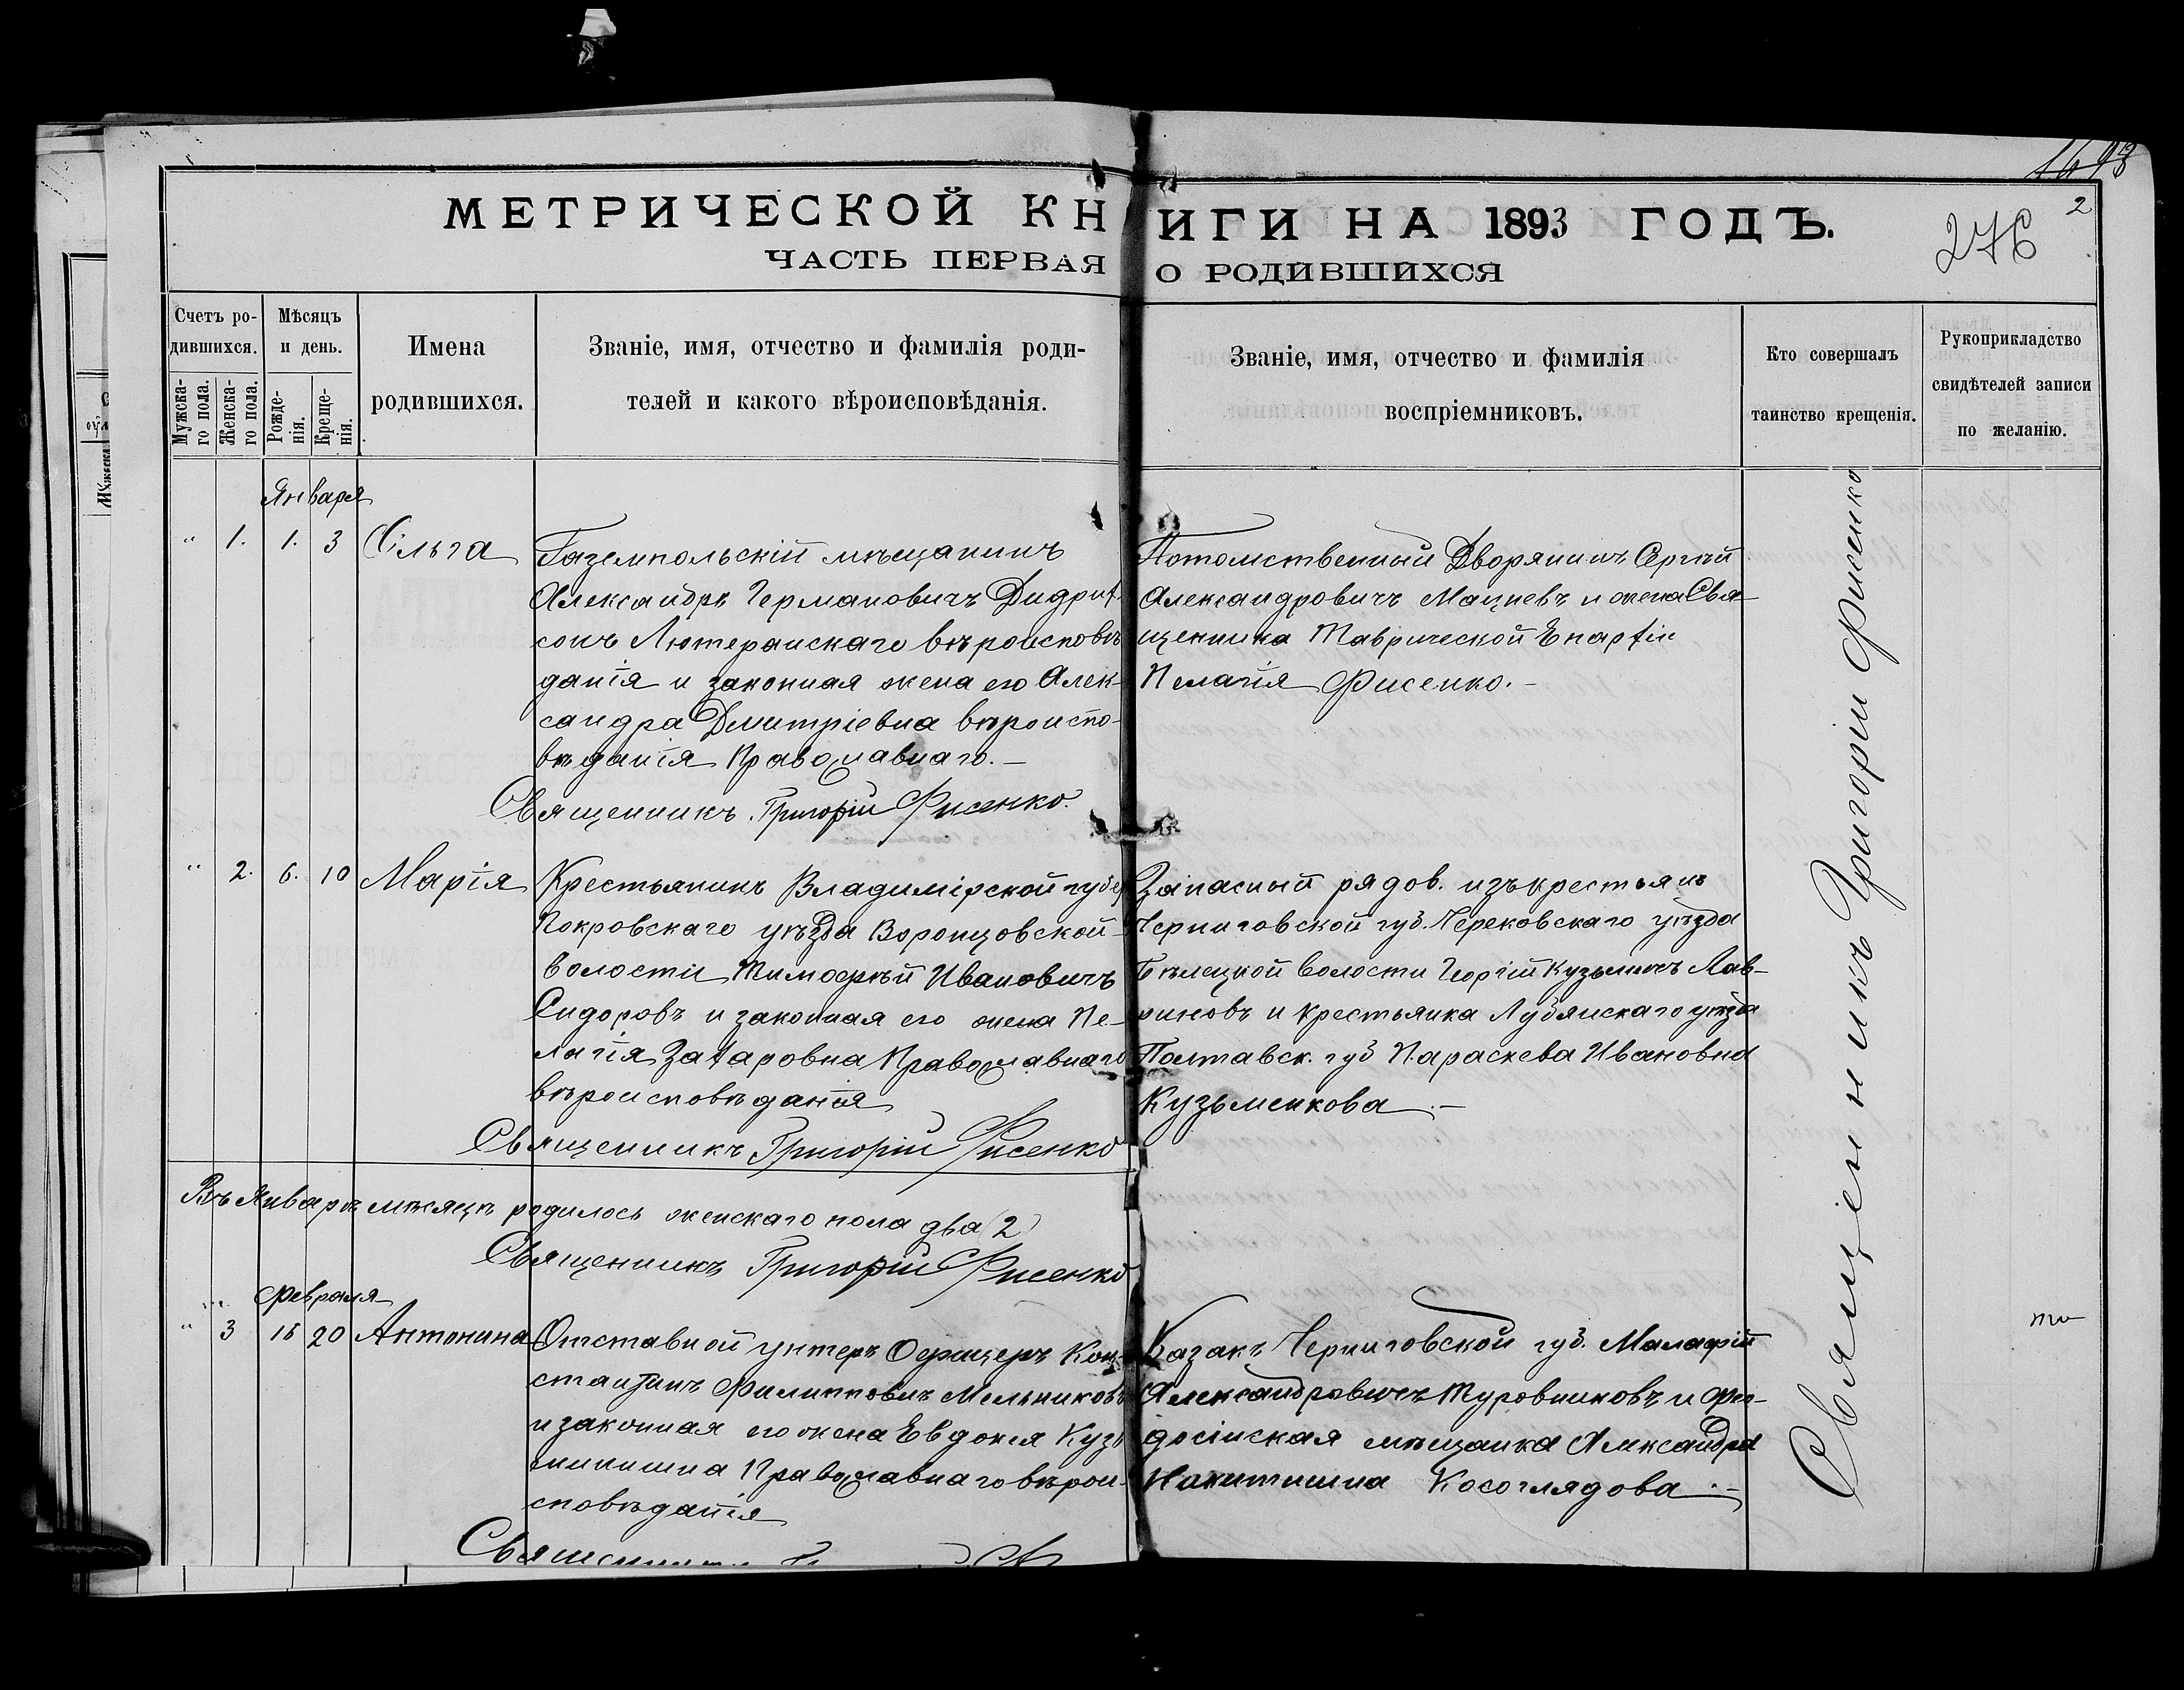 1693
2
276
МЕТРИЧЕСКОЙ КНИГИ НА 1893 ГОДЪ.
ЧАСТЬ ПЕРВАЯ О РОДИВШИХСЯ
Счетъ ро-
дившихся.
Мужска-
го пола.
Женска-
го пола.
Мѣсяцъ
и день.
Рожде-
нія.
Креще-
нія.
Имена
родившихся.
Званіе, имя, отчество и фамилія роди-
телей и какого вѣроисповѣданія.
Званіе, имя, отчество и фамилія
воспріемниковъ.
Кто совершалъ
таинство крещенія.
Рукоприкладство
свидѣтелей записи
по желанію.
Января
" 1. 1. 3 Ольга
Газенпольскій мѣщанинъ
Александръ Германовичъ Дидрих-
сонъ Лютеранскаго вѣроисповѣ
данія и законная жена его Алек-
сандра Дмитріевна вѣроиспо-
вѣданія Православнаго.—
Священникъ Григорій Фисенко.
Потомственный Дворянинъ Сергѣй
Александровичъ Мацневъ и жена Свя-
щенника Таврической Епархіи
Пелагія Фисенко.—
" 2. 6. 10 Марія
Крестьянинъ Владимірской губер
Покровскаго уѣзда Воронцовской
волости Тимофѣй Ивановичъ
Сидоровъ и законная его жена Пе-
лагія Захаровна Православнаго
вѣроисповѣданія
Священникъ Григорій Фисенко
Запасный рядов. изъ крестьянъ
Черниговской губ. уѣзда
волости Георгій Кузьмичъ Лав-
риновъ и крестьянка уѣзда
Полтавск. губ Параскева Ивановна
Кузьменкова.—
Въ Январѣ мѣсяцѣ родилось женскаго пола два (2)
Священникъ Григорій Фисенко
Февраля
" 3 20 Антонина
Отставной унтеръ Офицеръ Кон-
стантинъ Филипповичъ Мельниковъ
и законная его жена Евдокія Кузь
минишна Православнаго вѣрои-
сповѣданія
Священникъ
Казакъ Черниговской губ. Малафій
Александровичъ Туровниковъ и Фео-
досійская мѣщанка Александра
Никитишна Косоглядова.—
Священникъ Григорій Фисенко